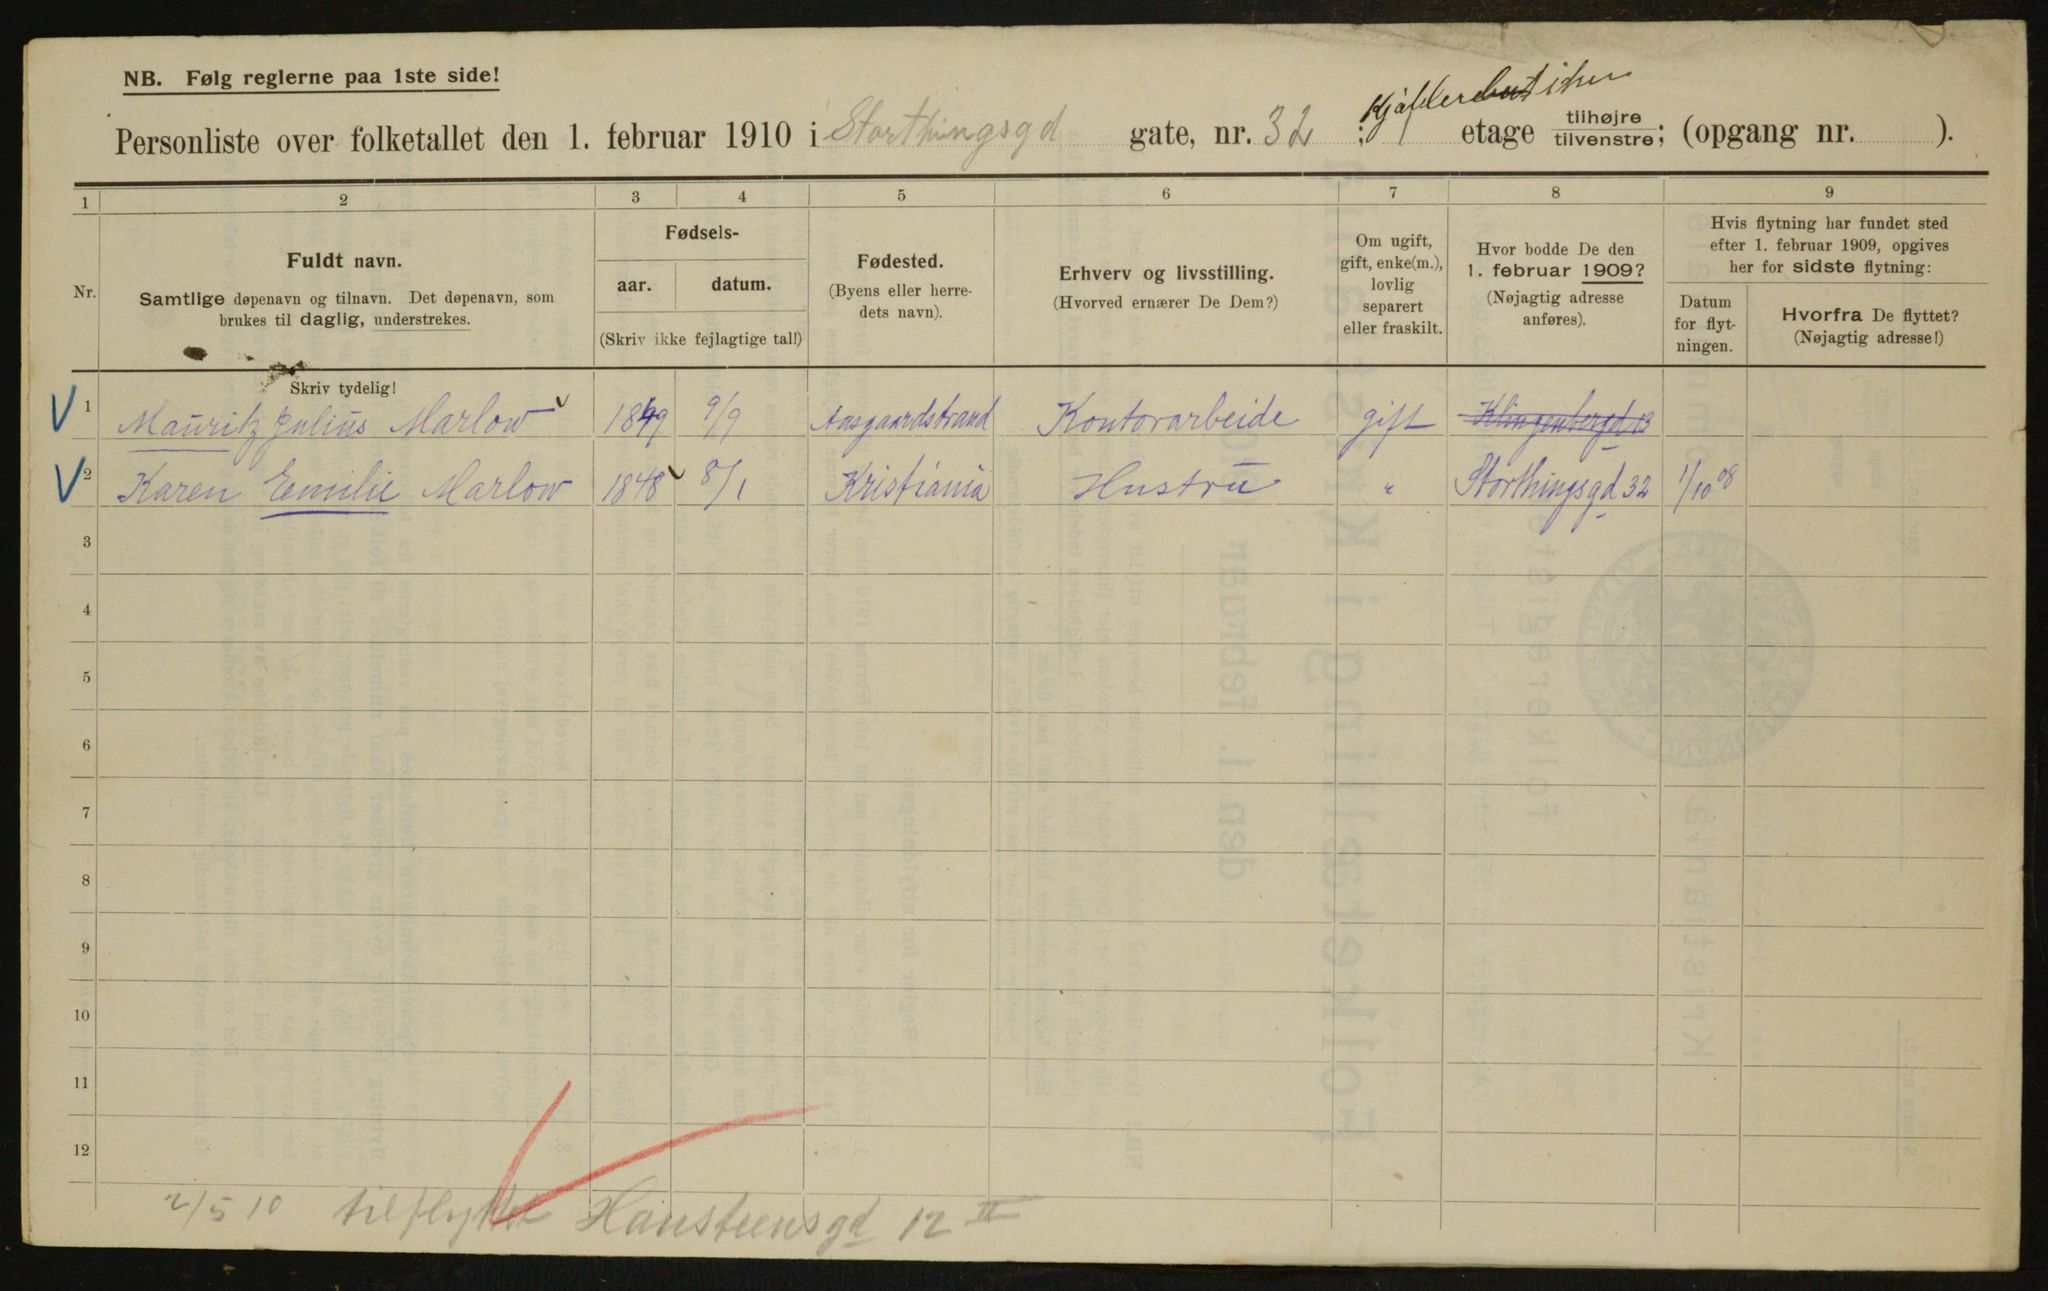 NB. Følg reglerne paa 1ste side!
Personliste over folketallet den 1. februar 1910 i Storthingsgd gate, nr. 32 ; etage tilhøjre tilvenstre; (opgang nr. ).
1 2 3 4 5 6 7 8 9
Nr.
Fuldt navn.
Samtlige døpenavn og tilnavn. Det døpenavn, som
brukes til daglig, understrekes.
Skriv tydelig!
Fødsels-
aar. datum.
(Skriv ikke fejlagtige tal!)
Fødested.
(Byens eller herre-
dets navn).
Erhverv og livsstilling.
(Hvorved ernærer De Dem?)
Om ugift,
gift, enke(m.),
lovlig
separert
eller fraskilt.
Hvor bodde De den
1. februar 1909?
(Nøjagtig adresse
anføres).
Hvis flytning har fundet sted
efter 1. februar 1909, opgives
her for sidste flytning:
Datum
for flyt-
ningen.
Hvorfra De flyttet?
(Nøjagtig adresse!)
1 Mauritz Julius Marlow 1849 9/9 Aasgaardstrand Kontorarbeide gift Klingenbergd 13
2 Karen Emilie Marlow 1848 8/1 Kristiania Hustru " Storthingsgd 32 1/10 08
3
4
5
6
7
8
9
10
11
12
2/5 10 tilflyttet Hansteensgd 12 II